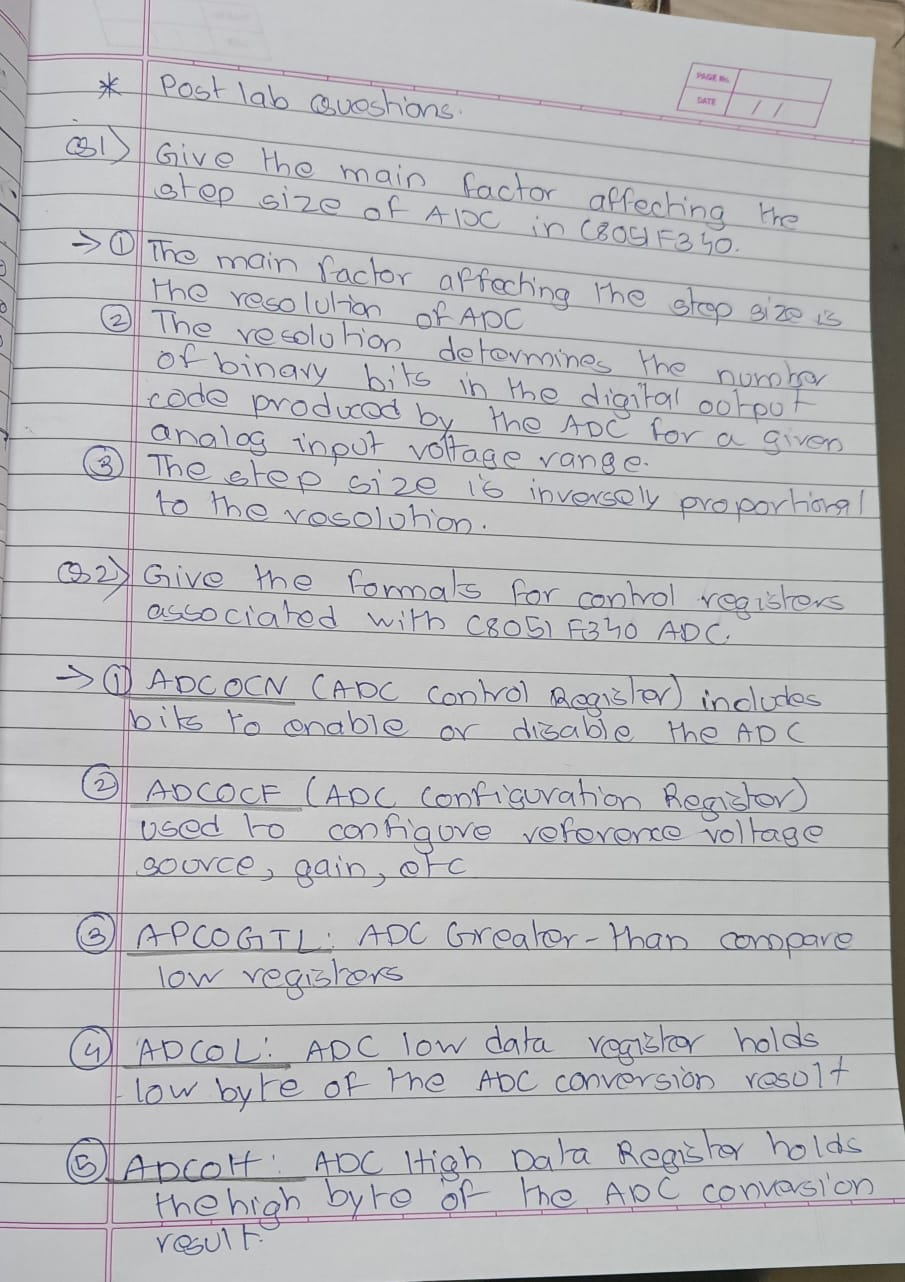 PAGE No.
DATE / /
* Post lab Questions.
Q1) Give the main factor affecting the
step size of ADC in C8051F340.
→ ① The main factor affecting the step size is
the resolution of ADC
② The resolution determines the number
of binary bits in the digital output
code produced by the ADC for a given
analog input voltage range.
③ The step size is inversely proportional
to the resolution.
Q2) Give the formats for control registers
associated with C8051F340 ADC.
→ ① ADC0CN (ADC control Register) includes
bits to enable or disable the ADC
② ADC0CF (ADC Configuration Register)
used to configure reference voltage
source, gain, etc
③ ADC0GTL: ADC Greater-than compare
low registers
④ ADC0L: ADC low data register holds
low byte of the ADC conversion result
⑤ ADC0H: ADC High Data Register holds
the high byte of the ADC conversion
result.